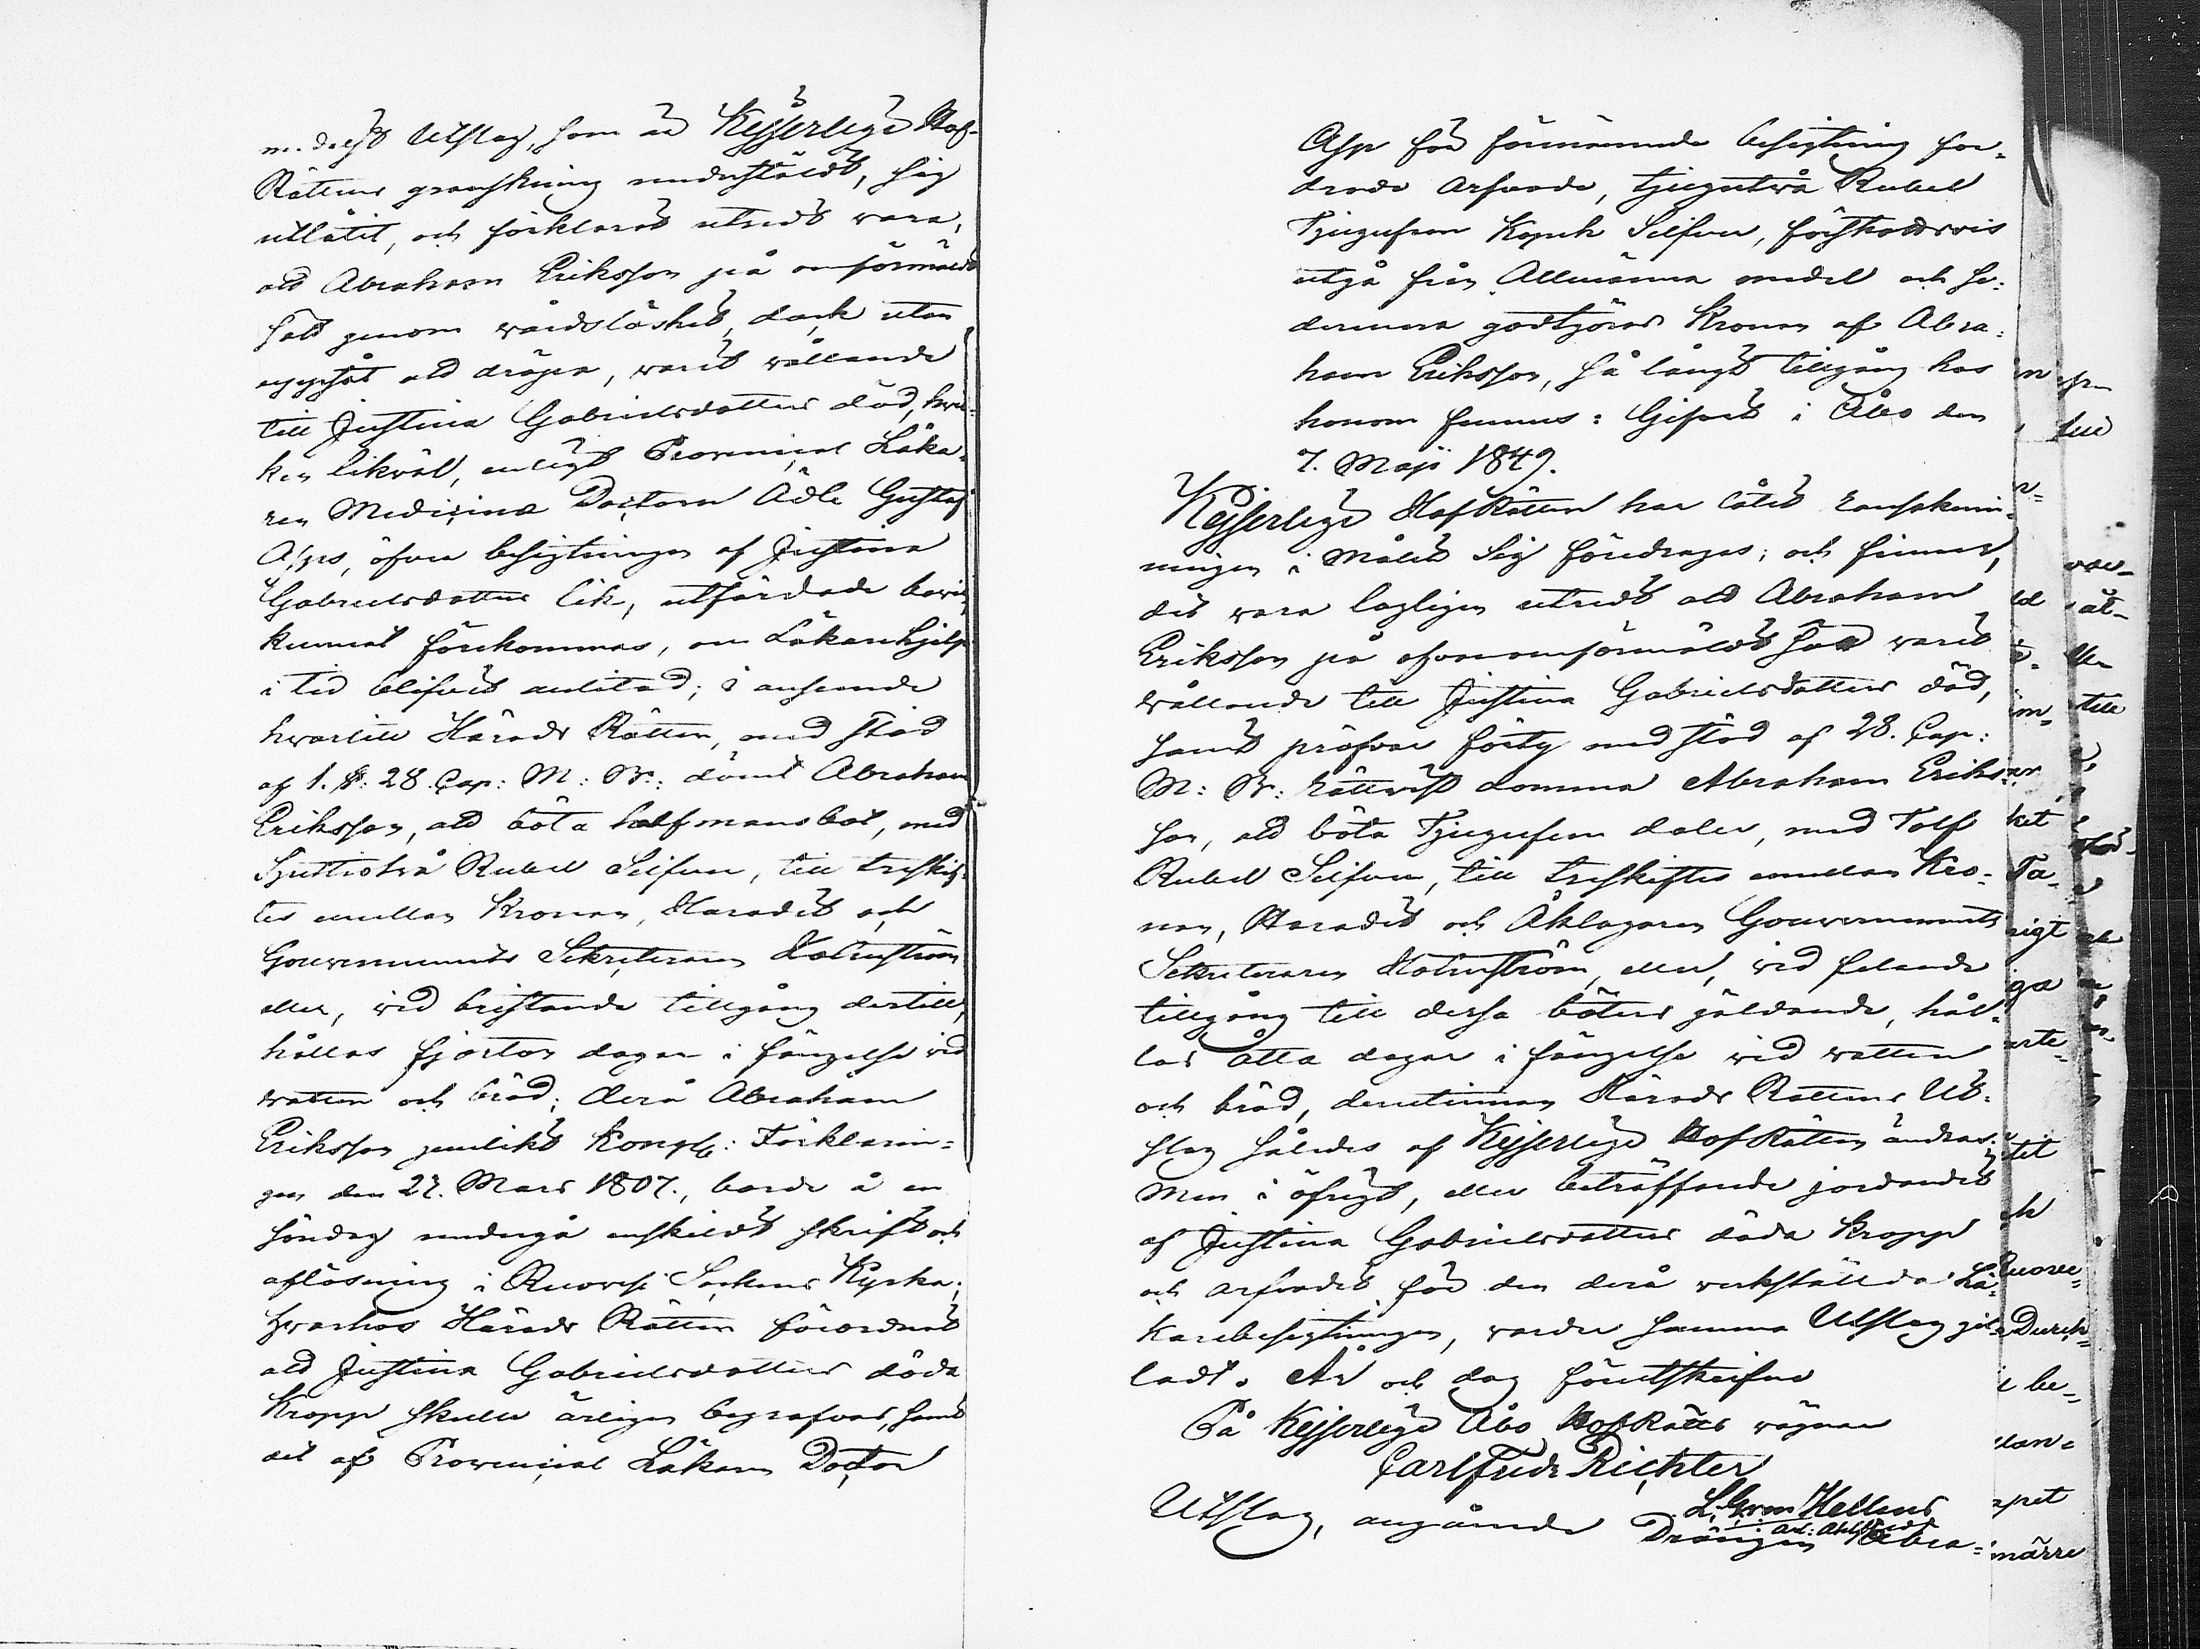 medelst Utslag, som är Kejserlige Hof-
Rättens granskning understäldt, sig
utlåtit, och förklarat utredt wara,
att Abraham Eriksson på omförmäldt
sätt genom wårdslöshet, dock utan
uppsåt att dräpa, warit wållande
till Justina Gabrielsdotters död, hwil-
ken likväl, enligt Provincial Läka-
ren Medicinæ Doctorn Ädle Gustaf
Asps, öfver besigtningen af Justina
Gabrielsdotters lik, utfärdade bewis,
kunnat förekommas, om Läkarehjelp
i tid blifvit anlitad; i anseende
hwartill Härads Rätten, med stöd
af 1. §. 28 Cap: M: B: dömt Abraham
Eriksson, att böta half mansbot, med
Sjuttiotvå Rubel Silfver, till treskif-
tes emellan Kronan, Häradet och
Gouvernements Sekreteraren Holmström
eller, wid bristande tillgång dertill,
hållas fjorton dagar i fängelse wid
watten och bröd; derå Abraham
Eriksson jemlikt Kongl: Förklarin-
gen den 27. Mars 1807., borde å en
Söndag undergå enskildt skrift och
aflösning i Ruovesi Sockens Kyrka;
hwarhos Härads Rätten förordnat
att Justina Gabrielsdotters döda
Kropp skulle ärligen begrafvas, samt
det af Provincial Läkaren Doctor
Asp för förenämnde besigtning for-
drade arfvode, tjugutvå Rubel
Tjugufem Kopek Silfver, förskottsvis
utgå från Allmänna medel och se-
dermera godtgöras Kronan af Abra-
ham Eriksson, så långt tillgång hos
honom funnes: Gifvet i Åbo den
7. Maji 1849.
Kejserlige HofRätten har låtit ransaknin-
ningen i målet Sig föredragas; och finner,
det wara lagligen utredt att Abraham
Eriksson på ofvanomförmäldt sätt warit
wållande till Justina Gabrielsdotters död,
samt pröfvar förty med stöd af 28. Cap:
M: B: rättvist domma Abraham Eriks-
son, att böta Tjugufem daler, med Tolf
Rubel Silfver, till treskiftes emellan Kro-
nan, Häradet och Åklagaren Gouvernements
Sekreteraren Holmström, eller, wid felande
tillgång till dessa böters gäldande, hål-
las åtta dagar i fängelse wid watten
och bröd, derutinnan Härads Rättens Ut-
slag således af Kejserlige HofRätten ändras.
Men i öfrigt, eller beträffande jordandet
af Justina Gabrielsdotters döda Kropp
och arfvodet för den derå verkställda Lä-
karebesigtningen, warder samma Utslag gil-
ladt. År och dag förutskrifne
På Kejserlige Åbo HofRätts wägnar
Carl Fredr Richter
L. G. von Hellens
Utslag, angående Drängen Abra-